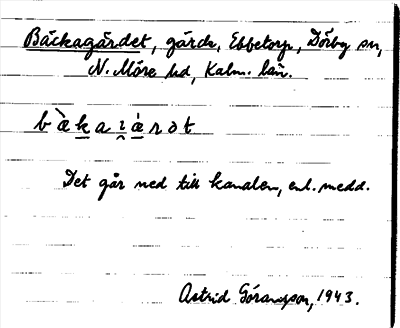 Bäckagärdet, gärde, Ebbetorp, Dörby sn,
N. Möre hd, Kalm. län.
bæ̀kaɪ̯ǽrət
Det går ned till kanalen, enl. medd.
Astrid Göransson, 1943.